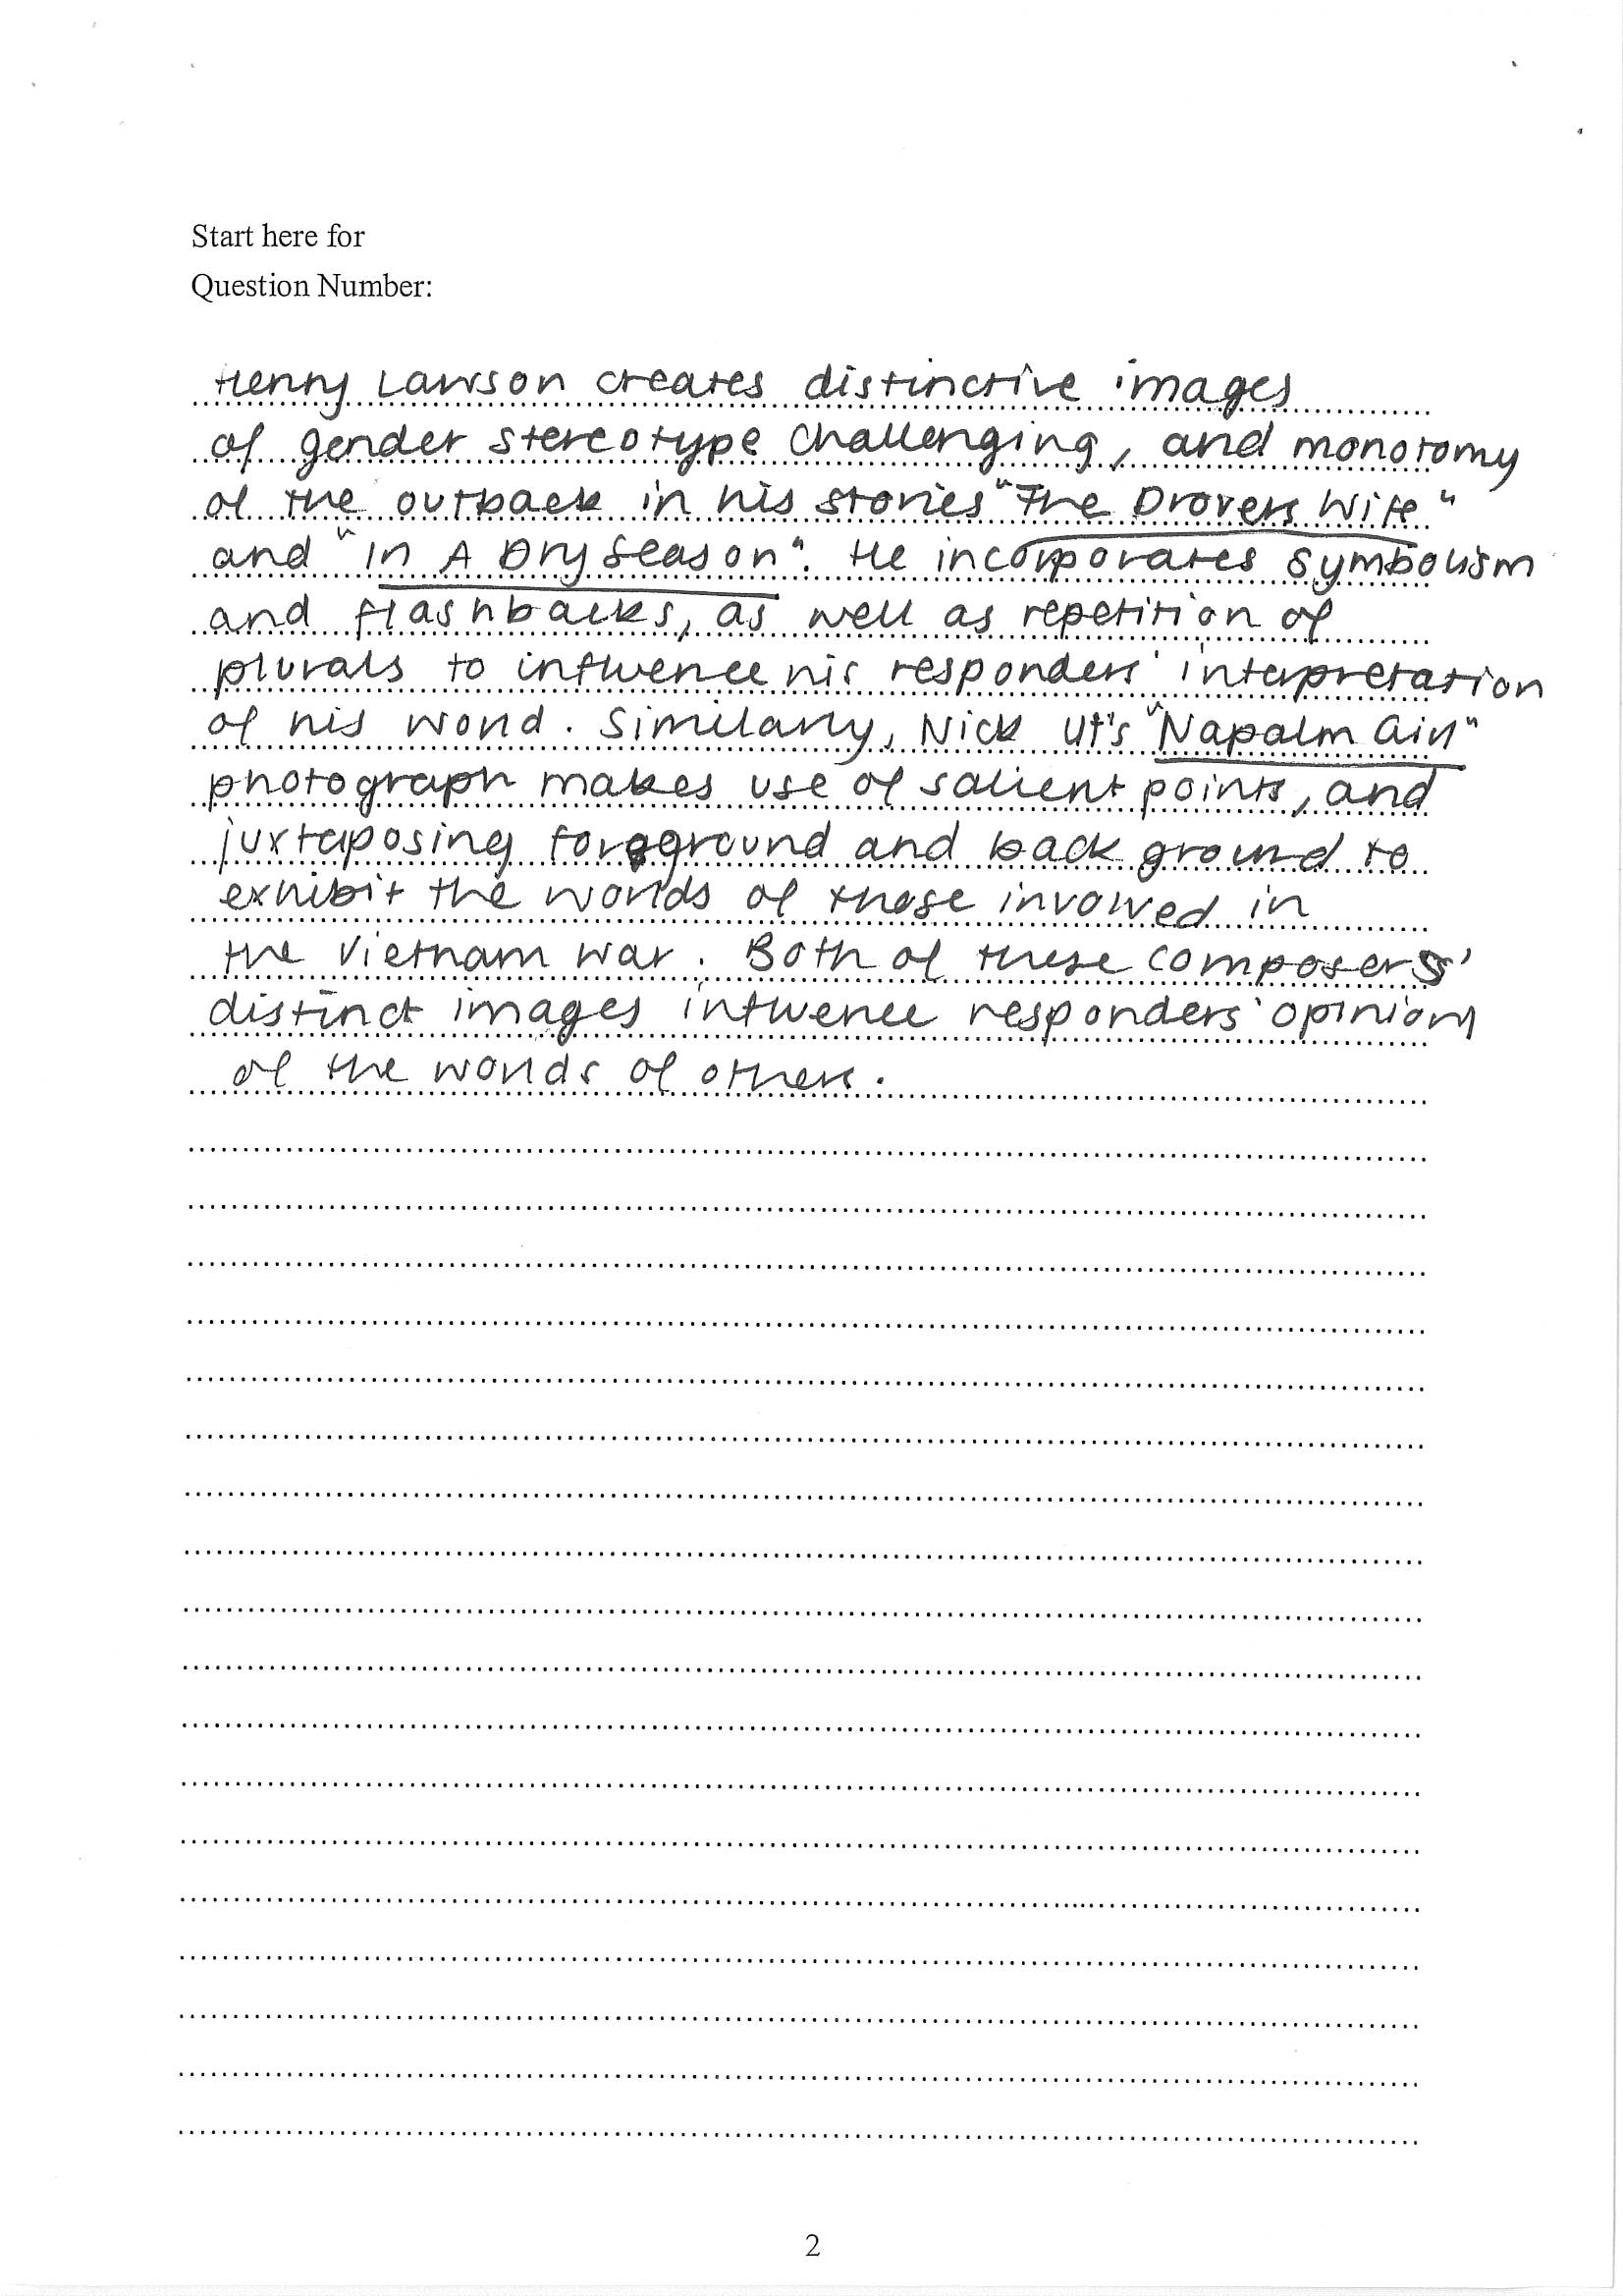 Start here for
Question Number:
Henny Lawson creates distinctive images
of gender stereotype challenging, and monotomy
of the outback in his stories "The Drovers Wife"
and "In A Dry Season". He incorporates symbolism
and flashbacks, as well as repetition of
plurals to influence his responders' interpretation
of his world. Similarly, Nick Ut's "Napalm Girl"
photograph makes use of salient points, and
juxtaposing foreground and back ground to
exhibit the worlds of those involved in
the Vietnam war. Both of these composers'
distinct images influence responders' opinions
of the worlds of others.
2